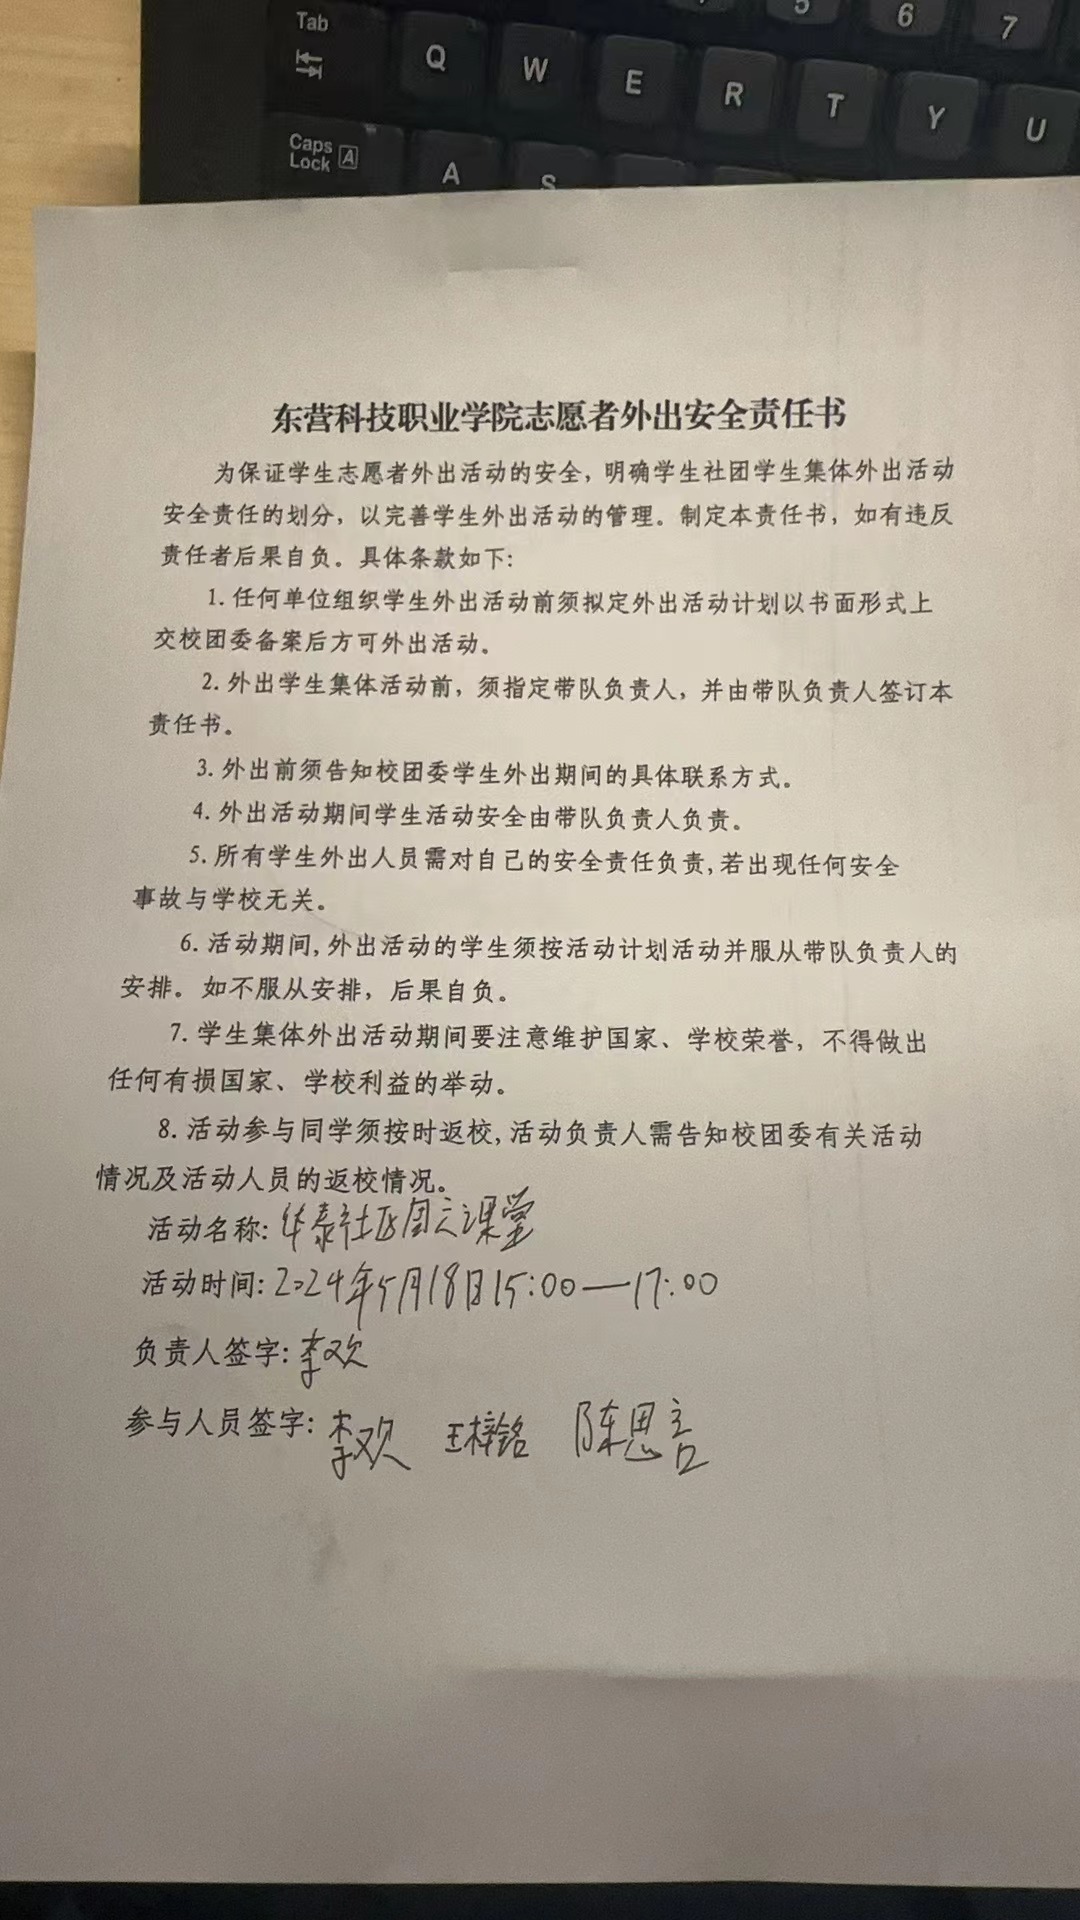 Tab
5
6
7
Q
W
E
R
T
Y
U
Caps
Lock A
A
S
东营科技职业学院志愿者外出安全责任书
为保证学生志愿者外出活动的安全，明确学生社团学生集体外出活动
安全责任的划分，以完善学生外出活动的管理。制定本责任书，如有违反
责任者后果自负。具体条款如下：
1. 任何单位组织学生外出活动前须拟定外出活动计划以书面形式上
交校团委备案后方可外出活动。
2. 外出学生集体活动前，须指定带队负责人，并由带队负责人签订本
责任书。
3. 外出前须告知校团委学生外出期间的具体联系方式。
4. 外出活动期间学生活动安全由带队负责人负责。
5. 所有学生外出人员需对自己的安全责任负责,若出现任何安全
事故与学校无关。
6. 活动期间,外出活动的学生须按活动计划活动并服从带队负责人的
安排。如不服从安排，后果自负。
7. 学生集体外出活动期间要注意维护国家、学校荣誉，不得做出
任何有损国家、学校利益的举动。
8. 活动参与同学须按时返校,活动负责人需告知校团委有关活动
情况及活动人员的返校情况。
活动名称: 华泰社区周六课堂
活动时间: 2024年5月18日15:00—17:00
负责人签字: 李欢
参与人员签字: 李欢 王梓铭 陈思言